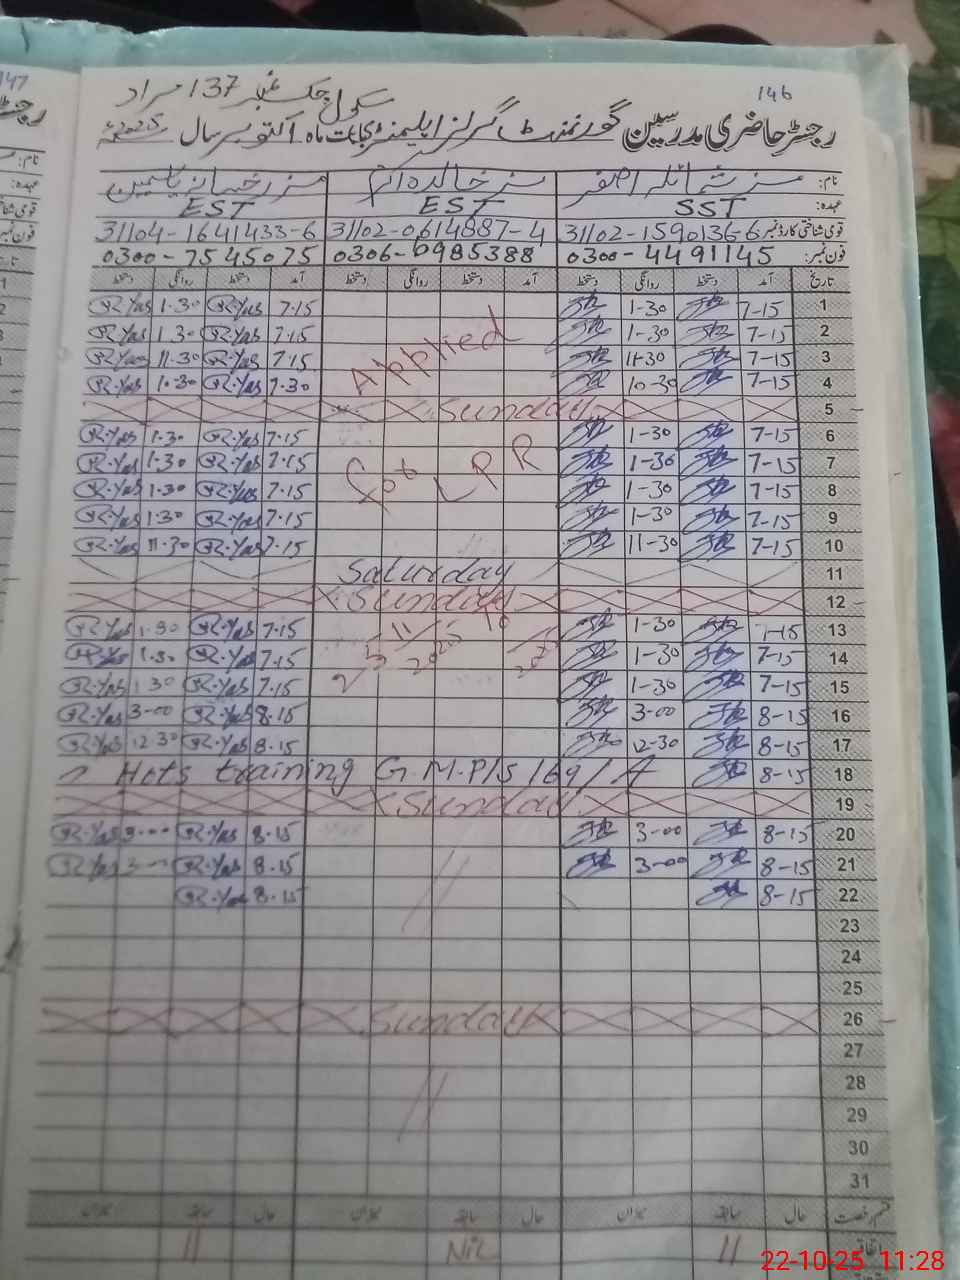 147
146
سکول چک نمبر 137 مراد
رجسٹر حاضری مدرسین گورنمنٹ گرلز ایلیمنٹری بابت ماہ اکتوبر سال 2025ء
نام: مسز شمائلہ اصغر مسز خالدہ اکرم مسز رخسانہ یاسمین
عہدہ: SST EST EST
قومی شناختی کارڈ نمبر 31102-1590136-6 31102-0614887-4 31104-1641433-6
فون نمبر: 0300-4491145 0306-6985388 0300-7545075
تاریخ آمد دستخط روانگی دستخط آمد دستخط روانگی دستخط آمد دستخط روانگی دستخط
1 7-15 1-30 7.15 R.Yas 1.30 R.Yas
2 7-15 1-30 Applied 7.15 R.Yas 1.30 R.Yas
3 7-15 11-30 7.15 R.Yas 11.30 R.Yas
4 7-15 10-30 7.30 R.Yas 10.30 R.Yas
5 Sunday
6 7-15 1-30 7.15 R.Yas 1.30 R.Yas
7 7-15 1-30 for LPR 7.15 R.Yas 1.30 R.Yas
8 7-15 1-30 7.15 R.Yas 1.30 R.Yas
9 7-15 1-30 7.15 R.Yas 1.30 R.Yas
10 7-15 11-30 7.15 R.Yas 11.30 R.Yas
11 Saturday
12 Sunday
13 7-15 1-30 7.15 R.Yas 1.30 R.Yas
14 7-15 1-30 7.15 R.Yas 1.30 R.Yas
15 7-15 1-30 7.15 R.Yas 1.30 R.Yas
16 8-15 3-00 8.15 R.Yas 3-00 R.Yas
17 8-15 12-30 8.15 R.Yas 12.30 R.Yas
18 8-15 Hots training G.M.P/S 169/A
19 Sunday
20 8-15 3-00 8.15 R.Yas 3-00 R.Yas
21 8-15 3-00 8.15 R.Yas 3-00 R.Yas
22 8-15 8.15 R.Yas
23
24
25
26 Sunday
27
28
29
30
31
قسم رخصت حال سابقہ میزان حال سابقہ میزان حال سابقہ میزان
اتفاقیہ 11 Nil 11
22-10-25 11:28